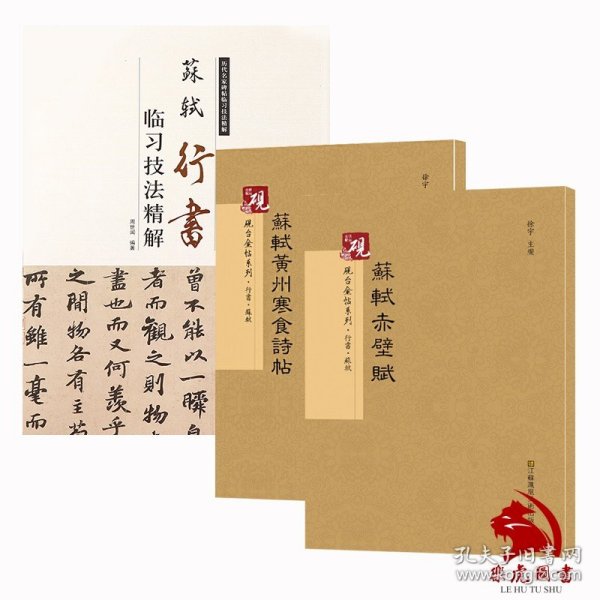 历代名家碑帖临习技法精解
蘇軾
行書
临习技法精解
周世闻 编著
曾不能以一瞬自
者而觀之則物
盡也而又何羨乎
之間物各有主苟
所有雖一毫而
徐宇
砚
砚台金帖系列·行書·蘇軾
蘇軾黃州寒食詩帖
徐宇 主编
砚
砚台金帖系列·行書·蘇軾
蘇軾赤壁賦
江蘇鳳凰
孔夫子旧书网
樂虎圖書
LE HU TU SHU